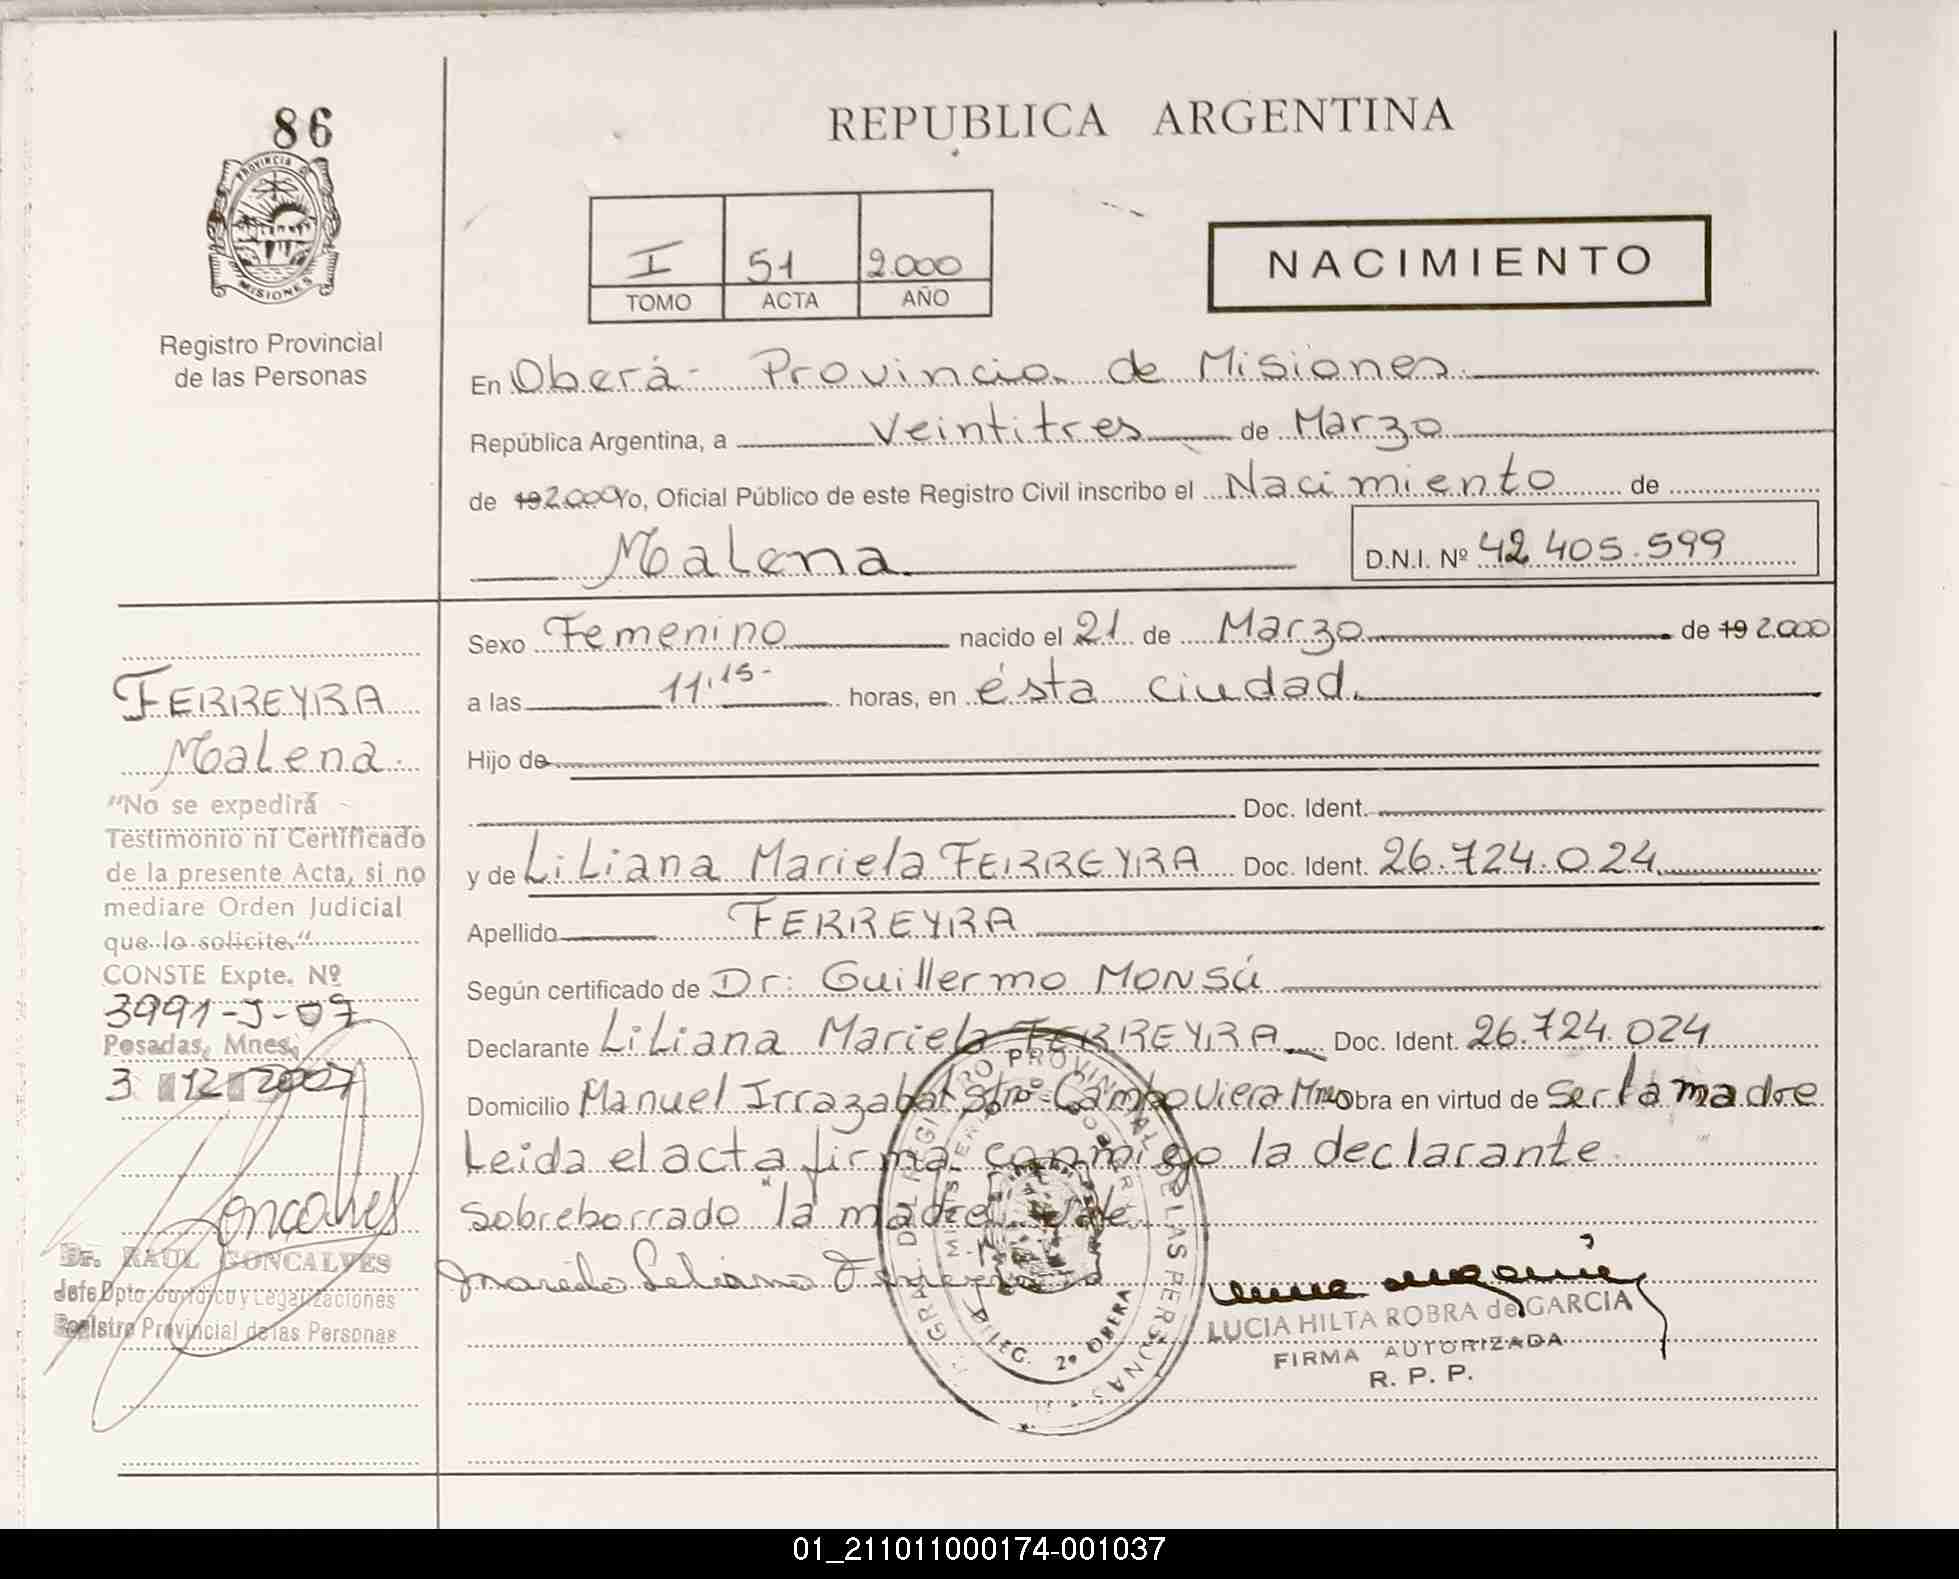 86
PROVINCIA DE
MISIONES
Registro Provincial
de las Personas
REPUBLICA ARGENTINA
I 51 2.000
TOMO ACTA AÑO
NACIMIENTO
En Oberá- Provincia de Misiones.
República Argentina, a Veintitres de Marzo
de 19 2.000 Yo, Oficial Público de este Registro Civil inscribo el Nacimiento de
Malena
D.N.I. Nº 42.405.599
Sexo Femenino nacido el 21 de Marzo de 19 2.000
a las 11,15- horas, en ésta ciudad.
Hijo de
Doc. Ident.
y de Liliana Mariela FERREYRA Doc. Ident. 26.724.024
Apellido FERREYRA
Según certificado de Dr: Guillermo MONSÚ
Declarante Liliana Mariela FERREYRA Doc. Ident. 26.724.024
Domicilio Manuel Irrazabal Obra en virtud de ser la madre
Leida el acta firma conmigo la declarante
Sobreborrado "la madre" vale
FERREYRA
Malena.
"No se expedirá
Testimonio ni Certificado
de la presente Acta, si no
mediare Orden Judicial
que lo solicite."
CONSTE Expte. Nº
3991-J-07
Posadas, Mnes,
3 12 2007
Goncalves
Dr. RAUL GONCALVES
Jefe Dpto Jurídico y Legalizaciones
Registro Provincial de las Personas
GRAL. DEL REGISTRO PROVINCIAL DE LAS PERSONAS
DELEG. 2º OBERA
LUCIA HILTA ROBRA de GARCIA
FIRMA AUTORIZADA
R. P. P.
01_211011000174-001037